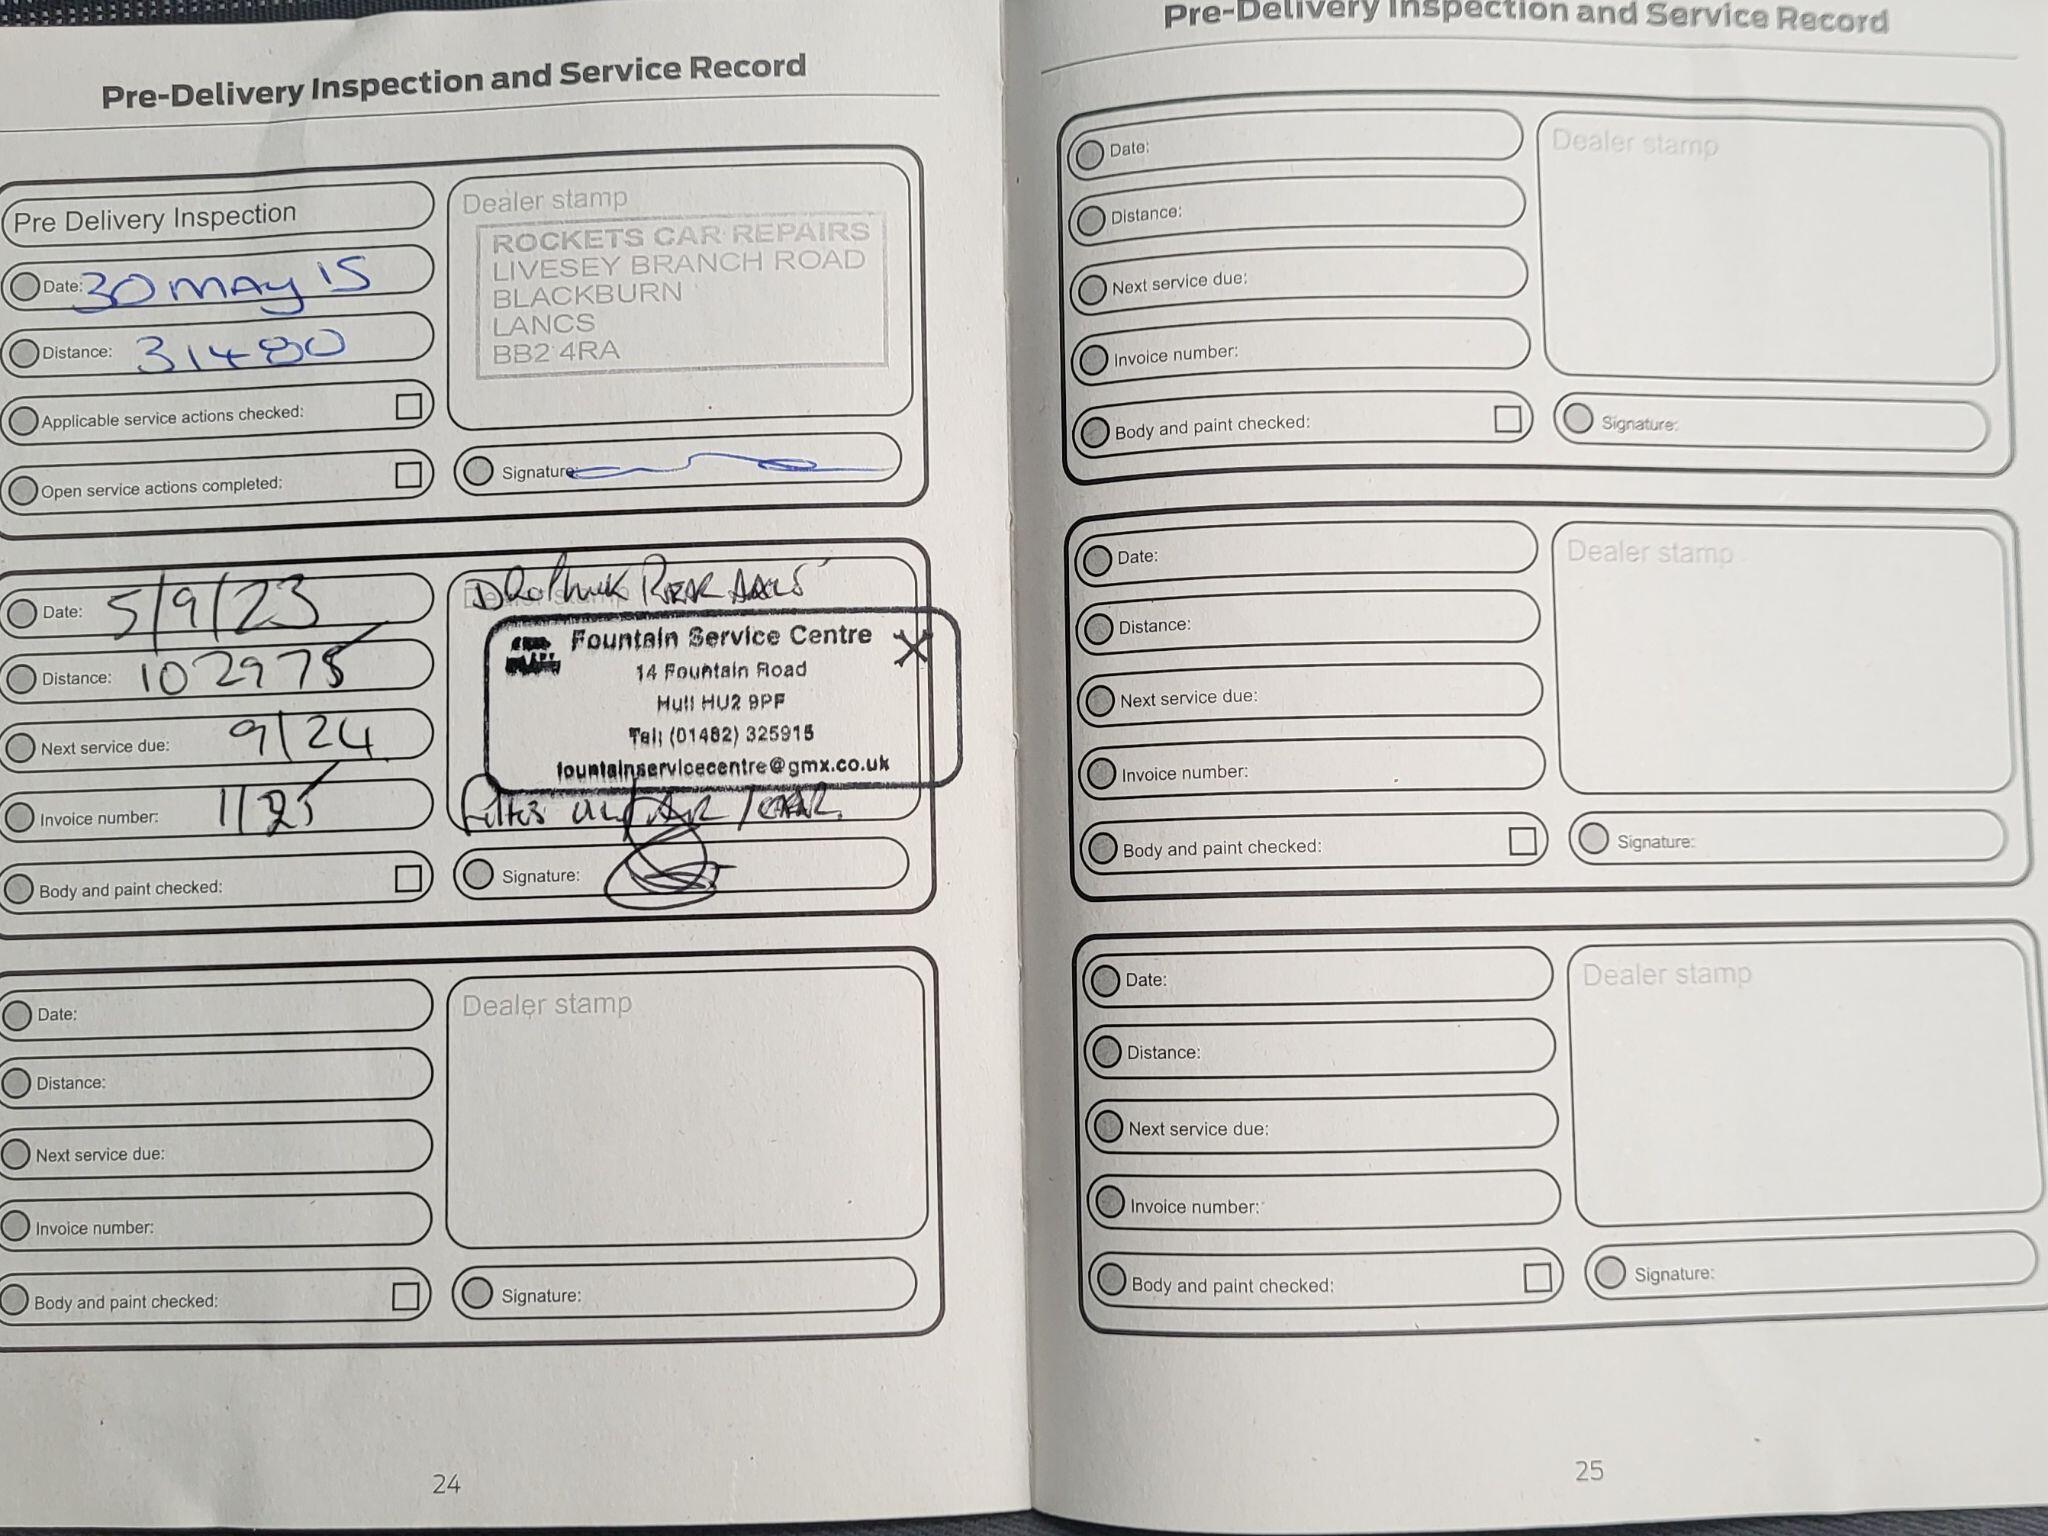 Pre-Delivery Inspection and Service Record
Pre Delivery Inspection
Date: 30 MAY 15
Distance: 31480
Applicable service actions checked:
Open service actions completed:
Dealer stamp
ROCKETS CAR REPAIRS
LIVESEY BRANCH ROAD
BLACKBURN
LANCS
BB2 4RA
Signature:
Date: 5/9/23
Distance: 102975
Next service due: 9/24
Invoice number: 1/25
Body and paint checked:
Dealer stamp
REAR
Fountain Service Centre
14 Fountain Road
Hull HU2 9PF
Tel: (01482) 325915
fountainservicecentre@gmx.co.uk
Signature:
Date:
Distance:
Next service due:
Invoice number:
Body and paint checked:
Dealer stamp
Signature:
24
Pre-Delivery Inspection and Service Record
Date:
Distance:
Next service due:
Invoice number:
Body and paint checked:
Dealer stamp
Signature:
Date:
Distance:
Next service due:
Invoice number:
Body and paint checked:
Dealer stamp
Signature:
Date:
Distance:
Next service due:
Invoice number:
Body and paint checked:
Dealer stamp
Signature:
25